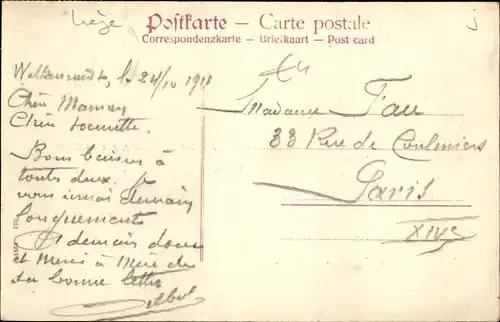 Liège
Postkarte – Carte postale
Correspondenzkarte – Briefkaart – Post card
Welkenraedt, le 24/10 1911
Chère Maman
Chère
Bons baisers à
toutes deux. Je
vous demain
longuement
A demain donc
et Merci à Mère de
sa bonne lettre
Madame Fau
33 Rue de Coulmiers
Paris
XIVe